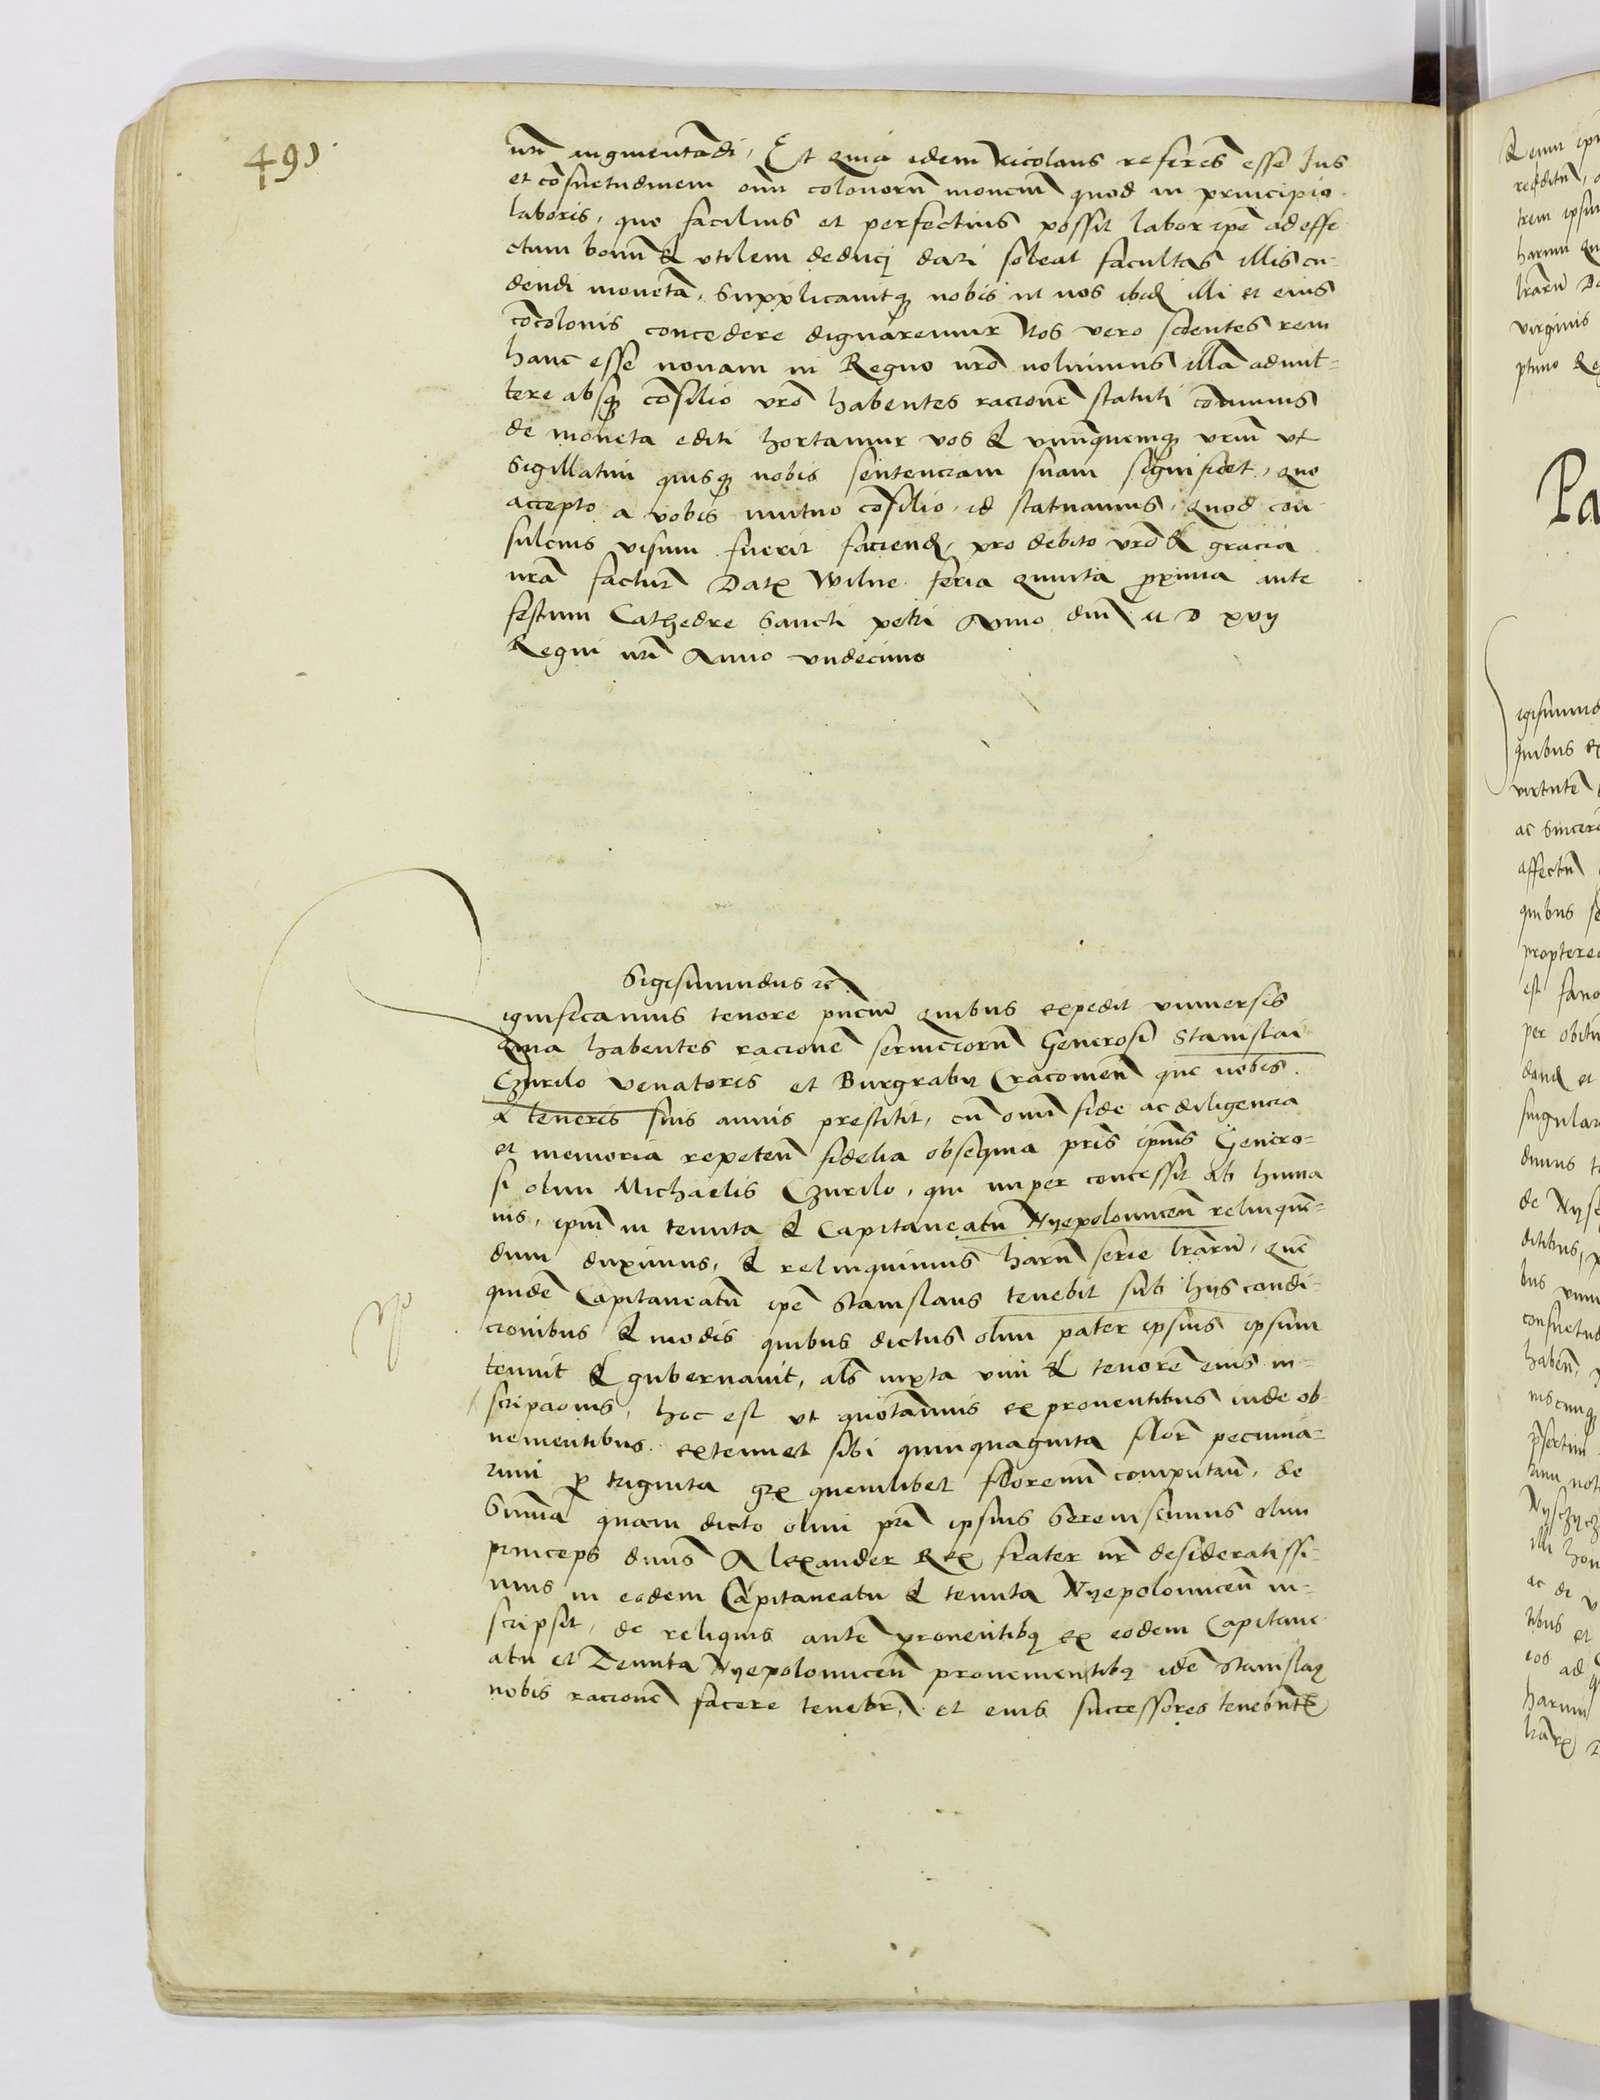 490
nrĩ augmentãdi, Et quia idem Nicolaus referẽs esse Jus
et cõsuetudinem oĩm colonorũ moneciũ quod in principio
laboris, quo facilius et perfectius possit labor ip̃e ad effe
ctum bonũ & vtilem deducj dari soleat facultas illis cu-
dendi monetã, supplicauitq3 nobis ut nos illi et eius
cõcolonis concedere dignaremur Nos vero scientes rem
hanc esse nouam in Regno nr̃o noluimus illã admit-
tere absq3 cõsilio vr̃o habentes racionẽ statuti cõmunis
de moneta editi hortamur vos & vnũquemq3 vrm̃ vt
sigillatim quisq3 nobis sentenciam suam significet, quo
accepto a vobis mutuo cõsilio, id statuamus, quod con
sulcius visum fuerit faciend, pro debito vr̃o & gracia
nrã facturi Dat Wilne feria quinta p̃xima ante
festum Cathedre Sancti petri Anno dni M D xvij
Regni nrĩ Anno vndecimo
Sigismundus rc̃
ignificamus tenore pñciũ quibus expedit vniuersis
Quia habentes racionẽ seruiciorũ Generosi Stanislai
Czurilo venatoris et Burgrabij Cracouieñ que nobis
a teneris suis annis prestitit, cũ omni fide ac diligencia
et memoria repeteñ fidelia obsequia pr̃is ip̃ius Genero-
si olim Michaelis Czurilo, qui nuper concessit ab huma
nis, ipm̃ in tenuta & Capitaneatu Nyepolomiceñ relinquẽ-
dum duximus, & relinquimus harũ serie lr̃arũ, quẽ
quidẽ Capitaneatũ ip̃e Stanislaus tenebit sub hijs condi-
cionibus & modis quibus dictus olim pater ipsius ipsum
tenuit & gubernauit, als iuxta vim & tenorẽ eius in-
scripcionis, hoc est vt quotannis ex prouentibus inde ob
uenientibus extenuet sibi quinquaginta floř pecunia-
rum p̱ triginta gr̃ quemlibet florenũ computañ, de
Summa quam dicto olim pr̃i ipsius Serenissimus olim
princeps dnũs Alexander Rex frater nr̃ desideratissi-
mus in eodem Capitaneatu & tenuta Nyepolomiceñ in-
scripsit, de reliquis autẽ prouentibq ex eodem Capitane
atu et Tenuta Nyepolomiceñ prouenientibq idẽ Stanislaq
nobis racionẽ facere tenebr̃, et eius successores tenebũtr